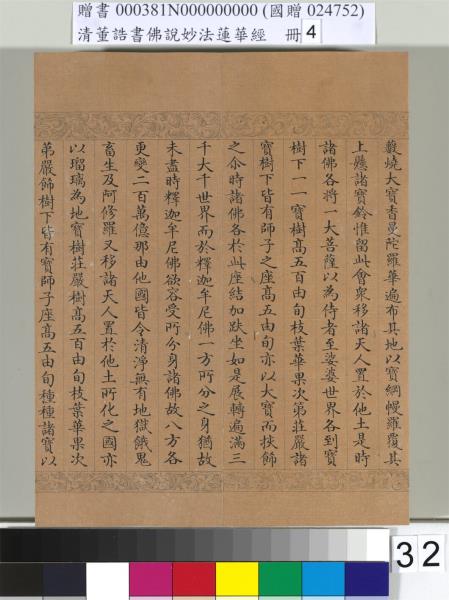 贈書 000381N000000000 (國贈 024752)
清董誥書佛說妙法蓮華經 冊 4
藪燒大寶香曼陀羅華遍布其地以寶網幔羅覆其
上懸諸寶鈴惟留此會眾移諸天人置於他土是時
諸佛各將一大菩薩以為侍者至娑婆世界各到寶
樹下一一寶樹高五百由旬枝葉華果次第莊嚴諸
寶樹下皆有師子之座高五由旬亦以大寶而挍飾
之尒時諸佛各於此座結加趺坐如是展轉遍滿三
千大千世界而於釋迦牟尼佛一方所分之身猶故
未盡時釋迦牟尼佛欲容受所分身諸佛故八方各
更變二百萬億那由他國皆令清淨無有地獄餓鬼
畜生及阿修羅又移諸天人置於他土所化之國亦
以瑠璃為地寶樹莊嚴樹高五百由旬枝葉華果次
第嚴飾樹下皆有寶師子座高五由旬種種諸寶以
32